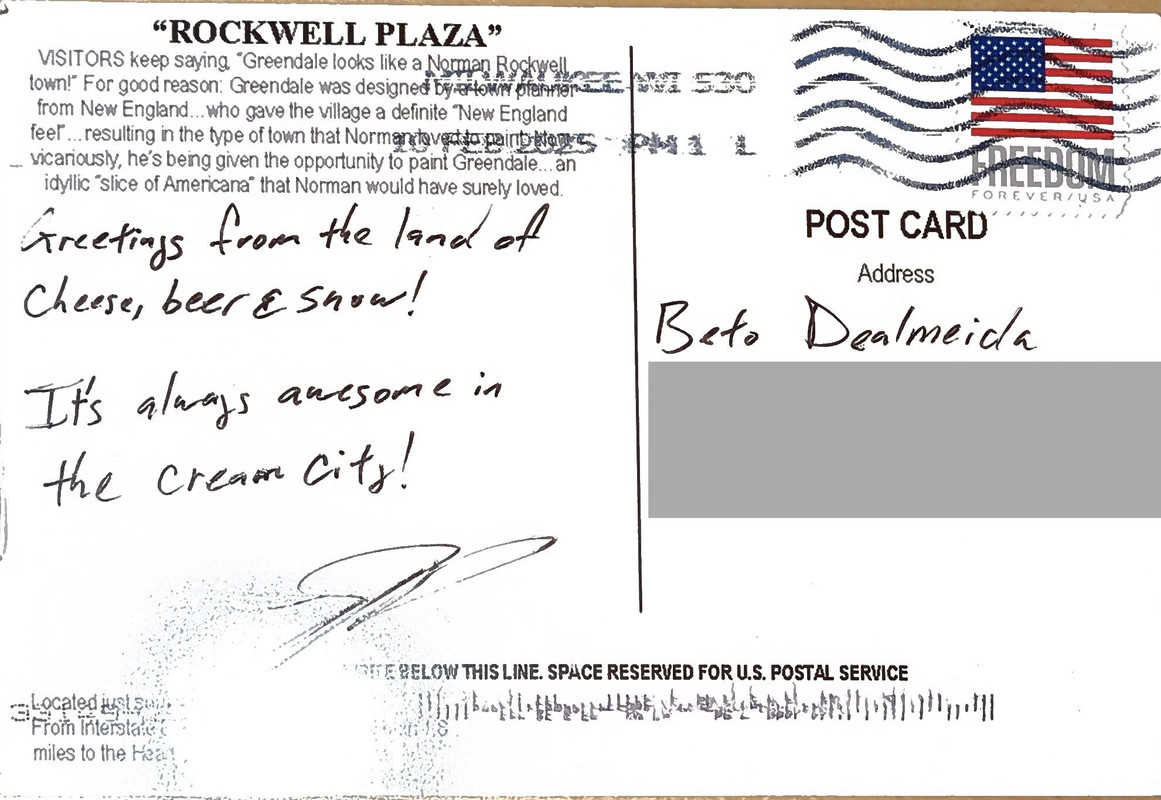 “ROCKWELL PLAZA”
VISITORS keep saying, “Greendale looks like a Norman Rockwell
town!” For good reason: Greendale was designed by a town planner
from New England...who gave the village a definite “New England
feel”...resulting in the type of town that Norman loved to paint. Now,
vicariously, he's being given the opportunity to paint Greendale...an
idyllic “slice of Americana” that Norman would have surely loved.
MILWAUKEE WI 530
2025 PM 1 L
FREEDOM
FOREVER/USA
POST CARD
Address
Greetings from the land of
Cheese, beer & snow!
It's always awesome in
the Cream City!
Beto Dealmeida
BELOW THIS LINE. SPACE RESERVED FOR U.S. POSTAL SERVICE
Located just
From Interstate
miles to the